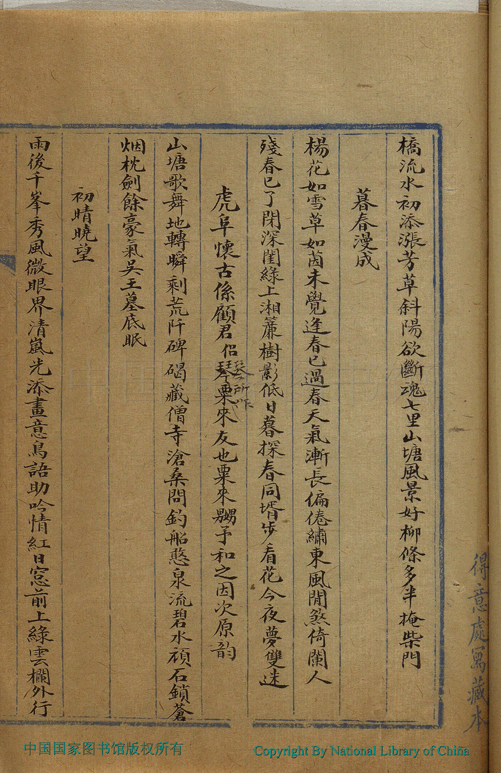 橋流水初添漲芳草斜陽欲斷魂七里山塘風景好柳條多半掩柴門
暮春漫成
楊花如雪草如茵未覺逢春已過春天氣漸長偏倦繡東風閒煞倚闌人
殘春已了閉深閨綠上湘簾樹影低日暮探春同壻步看花今夜夢雙迷
虎阜懷古係顧君侶琴所作栗來友也栗來嬲予和之因次原韵
山塘歌舞地轉瞬剩荒阡碑碣藏僧寺滄桑問釣船憨泉流碧水頑石鎖蒼
烟枕劍餘豪氣吳王墓底眠
初晴曉望
雨後千峯秀風微眼界清嵐光添畫意鳥語助吟情紅日窓前上綠雲欄外行
得意處寫藏本
中国国家图书馆版权所有
Copyright By National Library of China